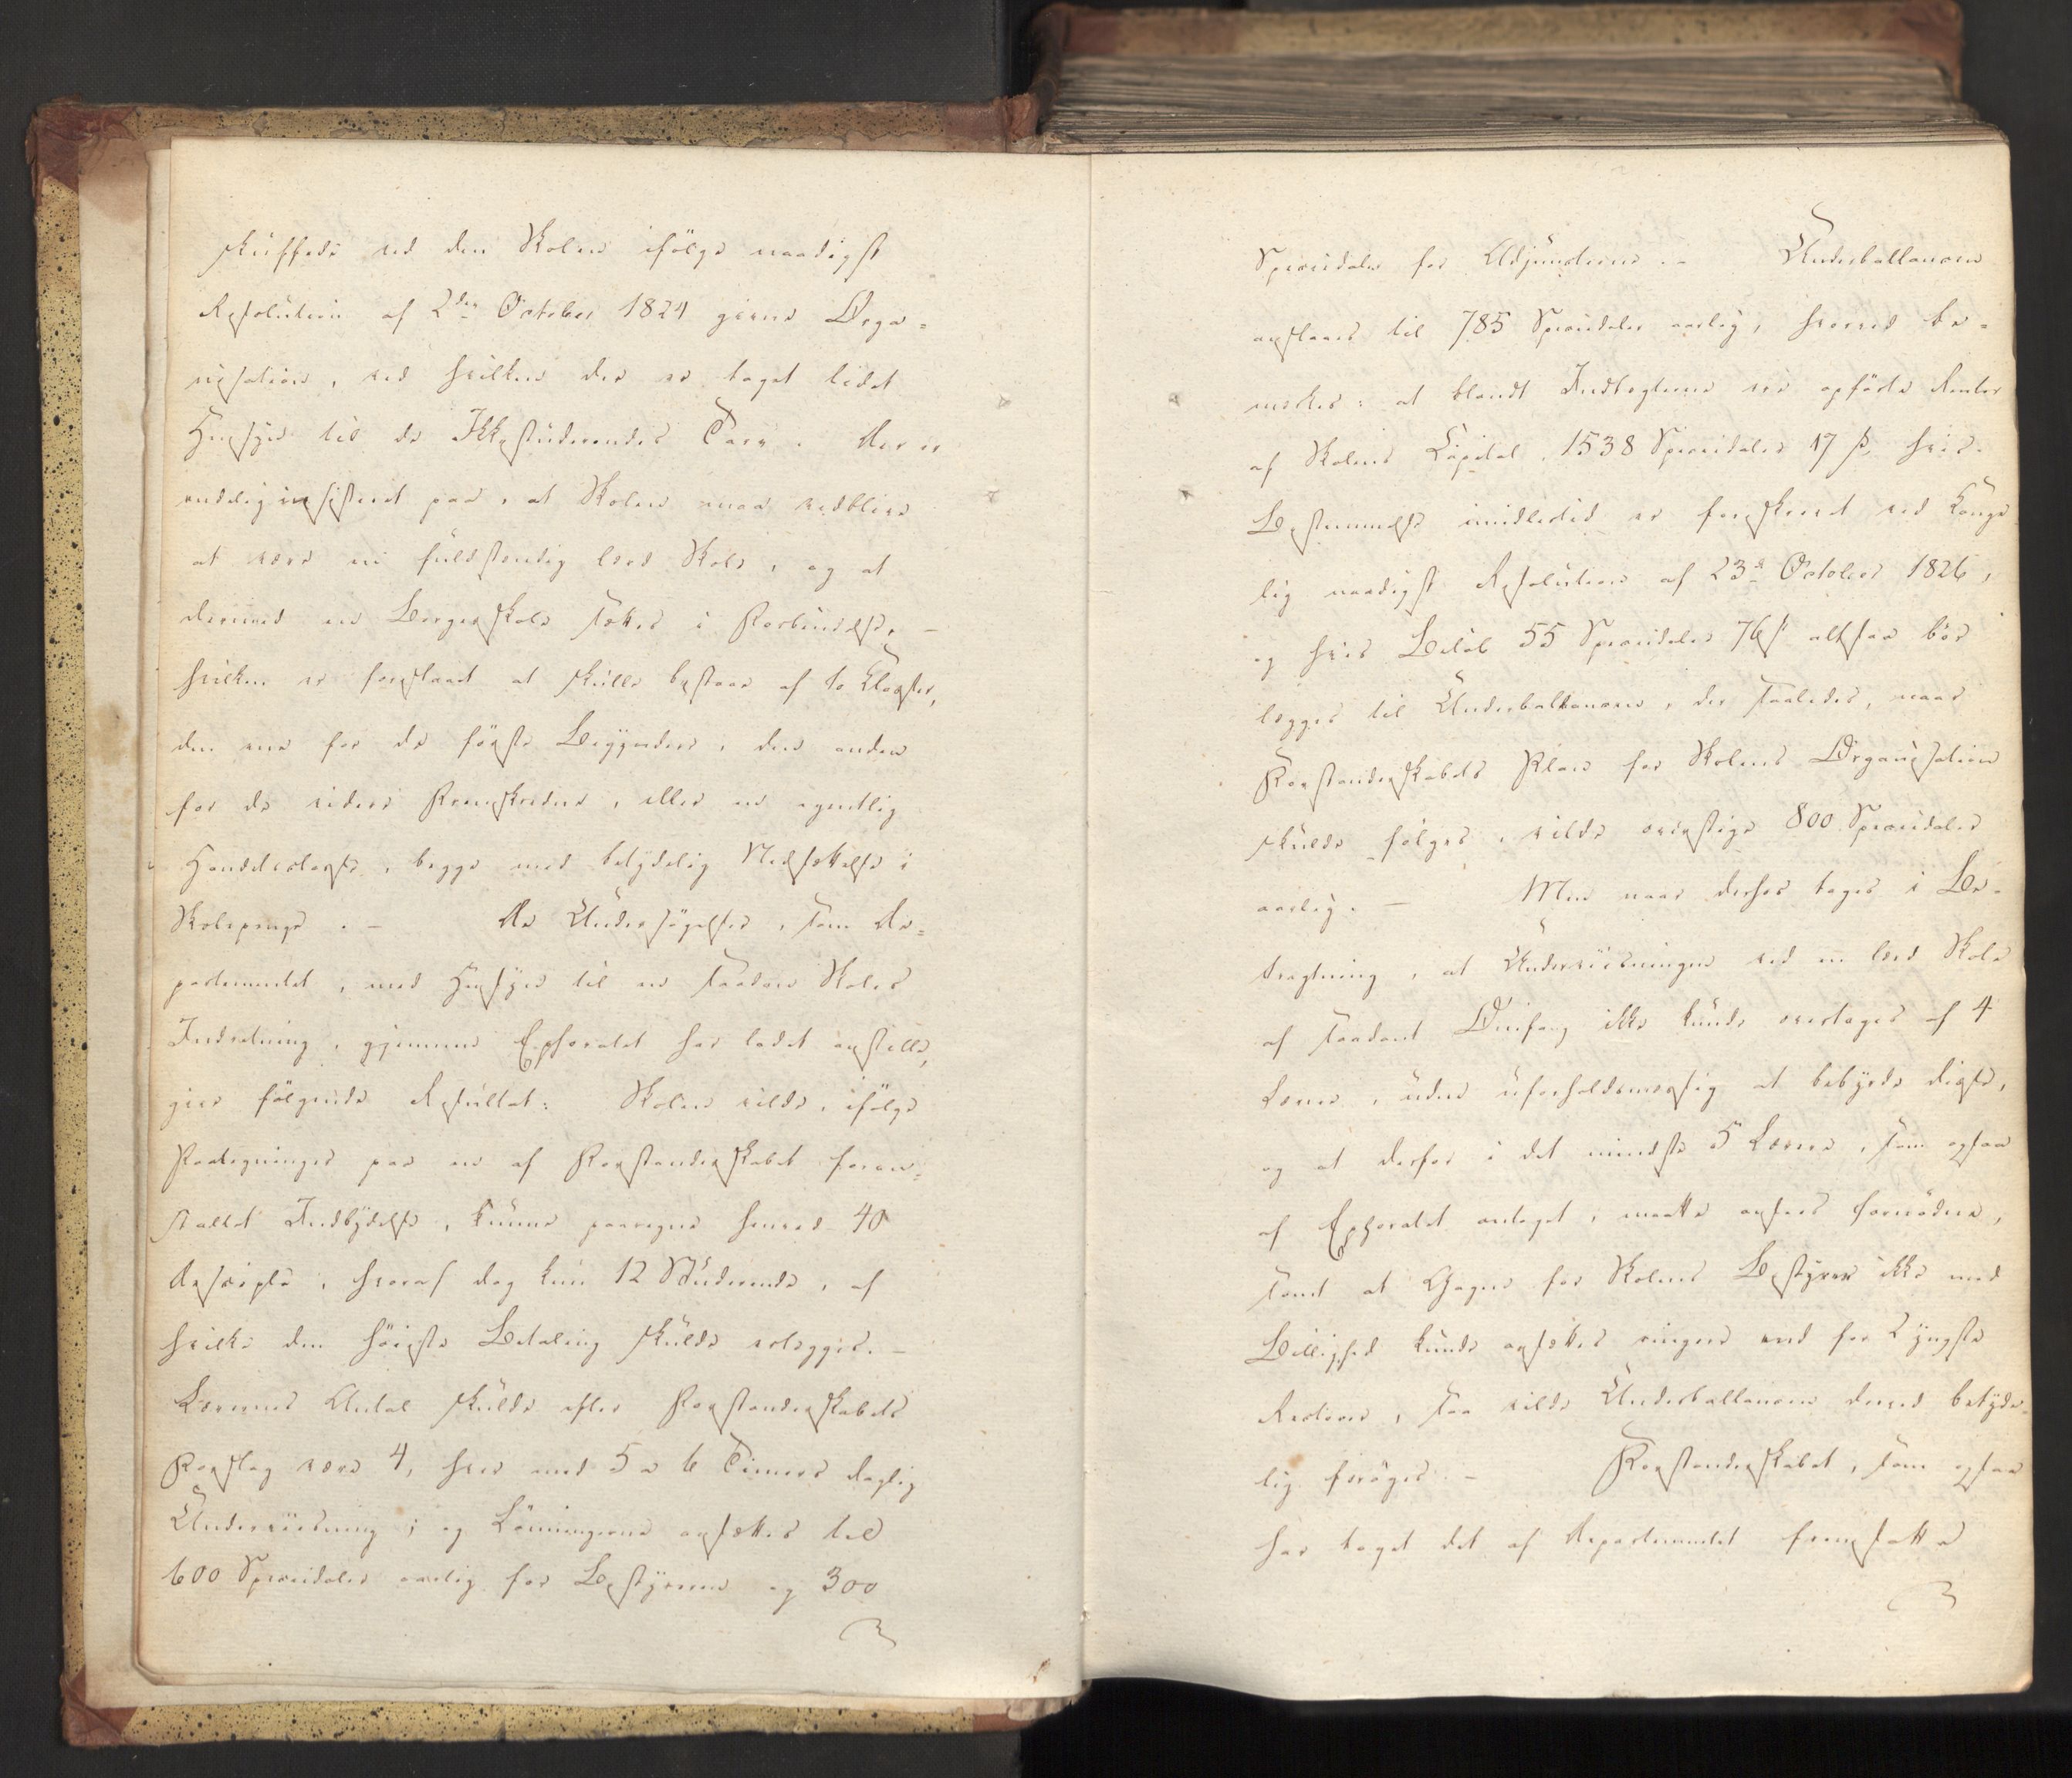 skuffede ved den Skolen ifölge naadigst
Resolution af 2den October 1824 givne Orga-
nisation, ved hvilken der er taget lidet
Hensyn til de Ikkestuderendes Tarv. Der er
endelig insisteret paa, at Skolen maa vedblive
at være en fuldstændig lærd Skole, og at
dermed en Borgerskole sættes i Forbindelse, -
hvilken er foreslaaet at skulle bestaae af to Classer,
den ene for de förste Begyndere, den anden
for de videre Fremskredne, eller en egentlig
Handelsclasse, begge med betydelig Nedsættelse i
Skolepenge. - De Undersögelser, som De-
partementet, med Hensyn til en saadan Skoles
Indretning, gjennem Ephoratet har ladet anstille,
give fölgende Resultat: Skolen vilde, ifölge
Paategninger paa en af Forstanderskabet foran-
staltet Indbydelse, kunne paaregne henved 40
Disciple, hvoraf dog kun 12 Studerende, af
hvilke den höieste Betaling skulde erlægges. -
Lærernes Antal skulde efter Forstanderskabets
Forslag være 4, hver med 5 a 6 Timers daglig
Underviisning; og Lönningerne ansættes til
600 Speciedaler aarlig for Bestyreren og 300
Speciedaler for Adjuncterne. - Underballancen
anslaaes til 785 Speciedaler aarlig, hvorved be-
mærkes: at blandt Indtægterne ere opförte Renter
af Skolens Capital, 1538 Speciedaler 17 ß, hvis
Bestemmelse imidlertid er foreskrevet ved Konge-
lig naadigst Resolution af 23de October 1826,
og hvis Belöb 55 Speciedaler 76 ß altsaa bör
lægges til Underballancen, der saaledes, naar
Forstanderskabets Plan for Skolens Organisation
skulde fölges, vilde overstige 800 Speciedaler
aarlig. - Men naar derhos tages i Be-
tragtning, at Underviisningen ved en lærd Skole
af saadant Omfang ikke kunde overtages af 4
Lærere, uden uforholdsmæssig at bebyrde disse,
og at derfor i det mindste 5 Lærere, som ogsaa
af Ephoratet antaget, maatte ansees fornödne,
samt at Gagen for Skolens Bestyrer ikke med
Billighed kunde ansættes ringere end for 2 yngste
Rectorer, saa vilde Underballancen derved betyde-
lig foröges. - Forstanderskabet, som ogsaa
har taget det af Departementet fremsatte